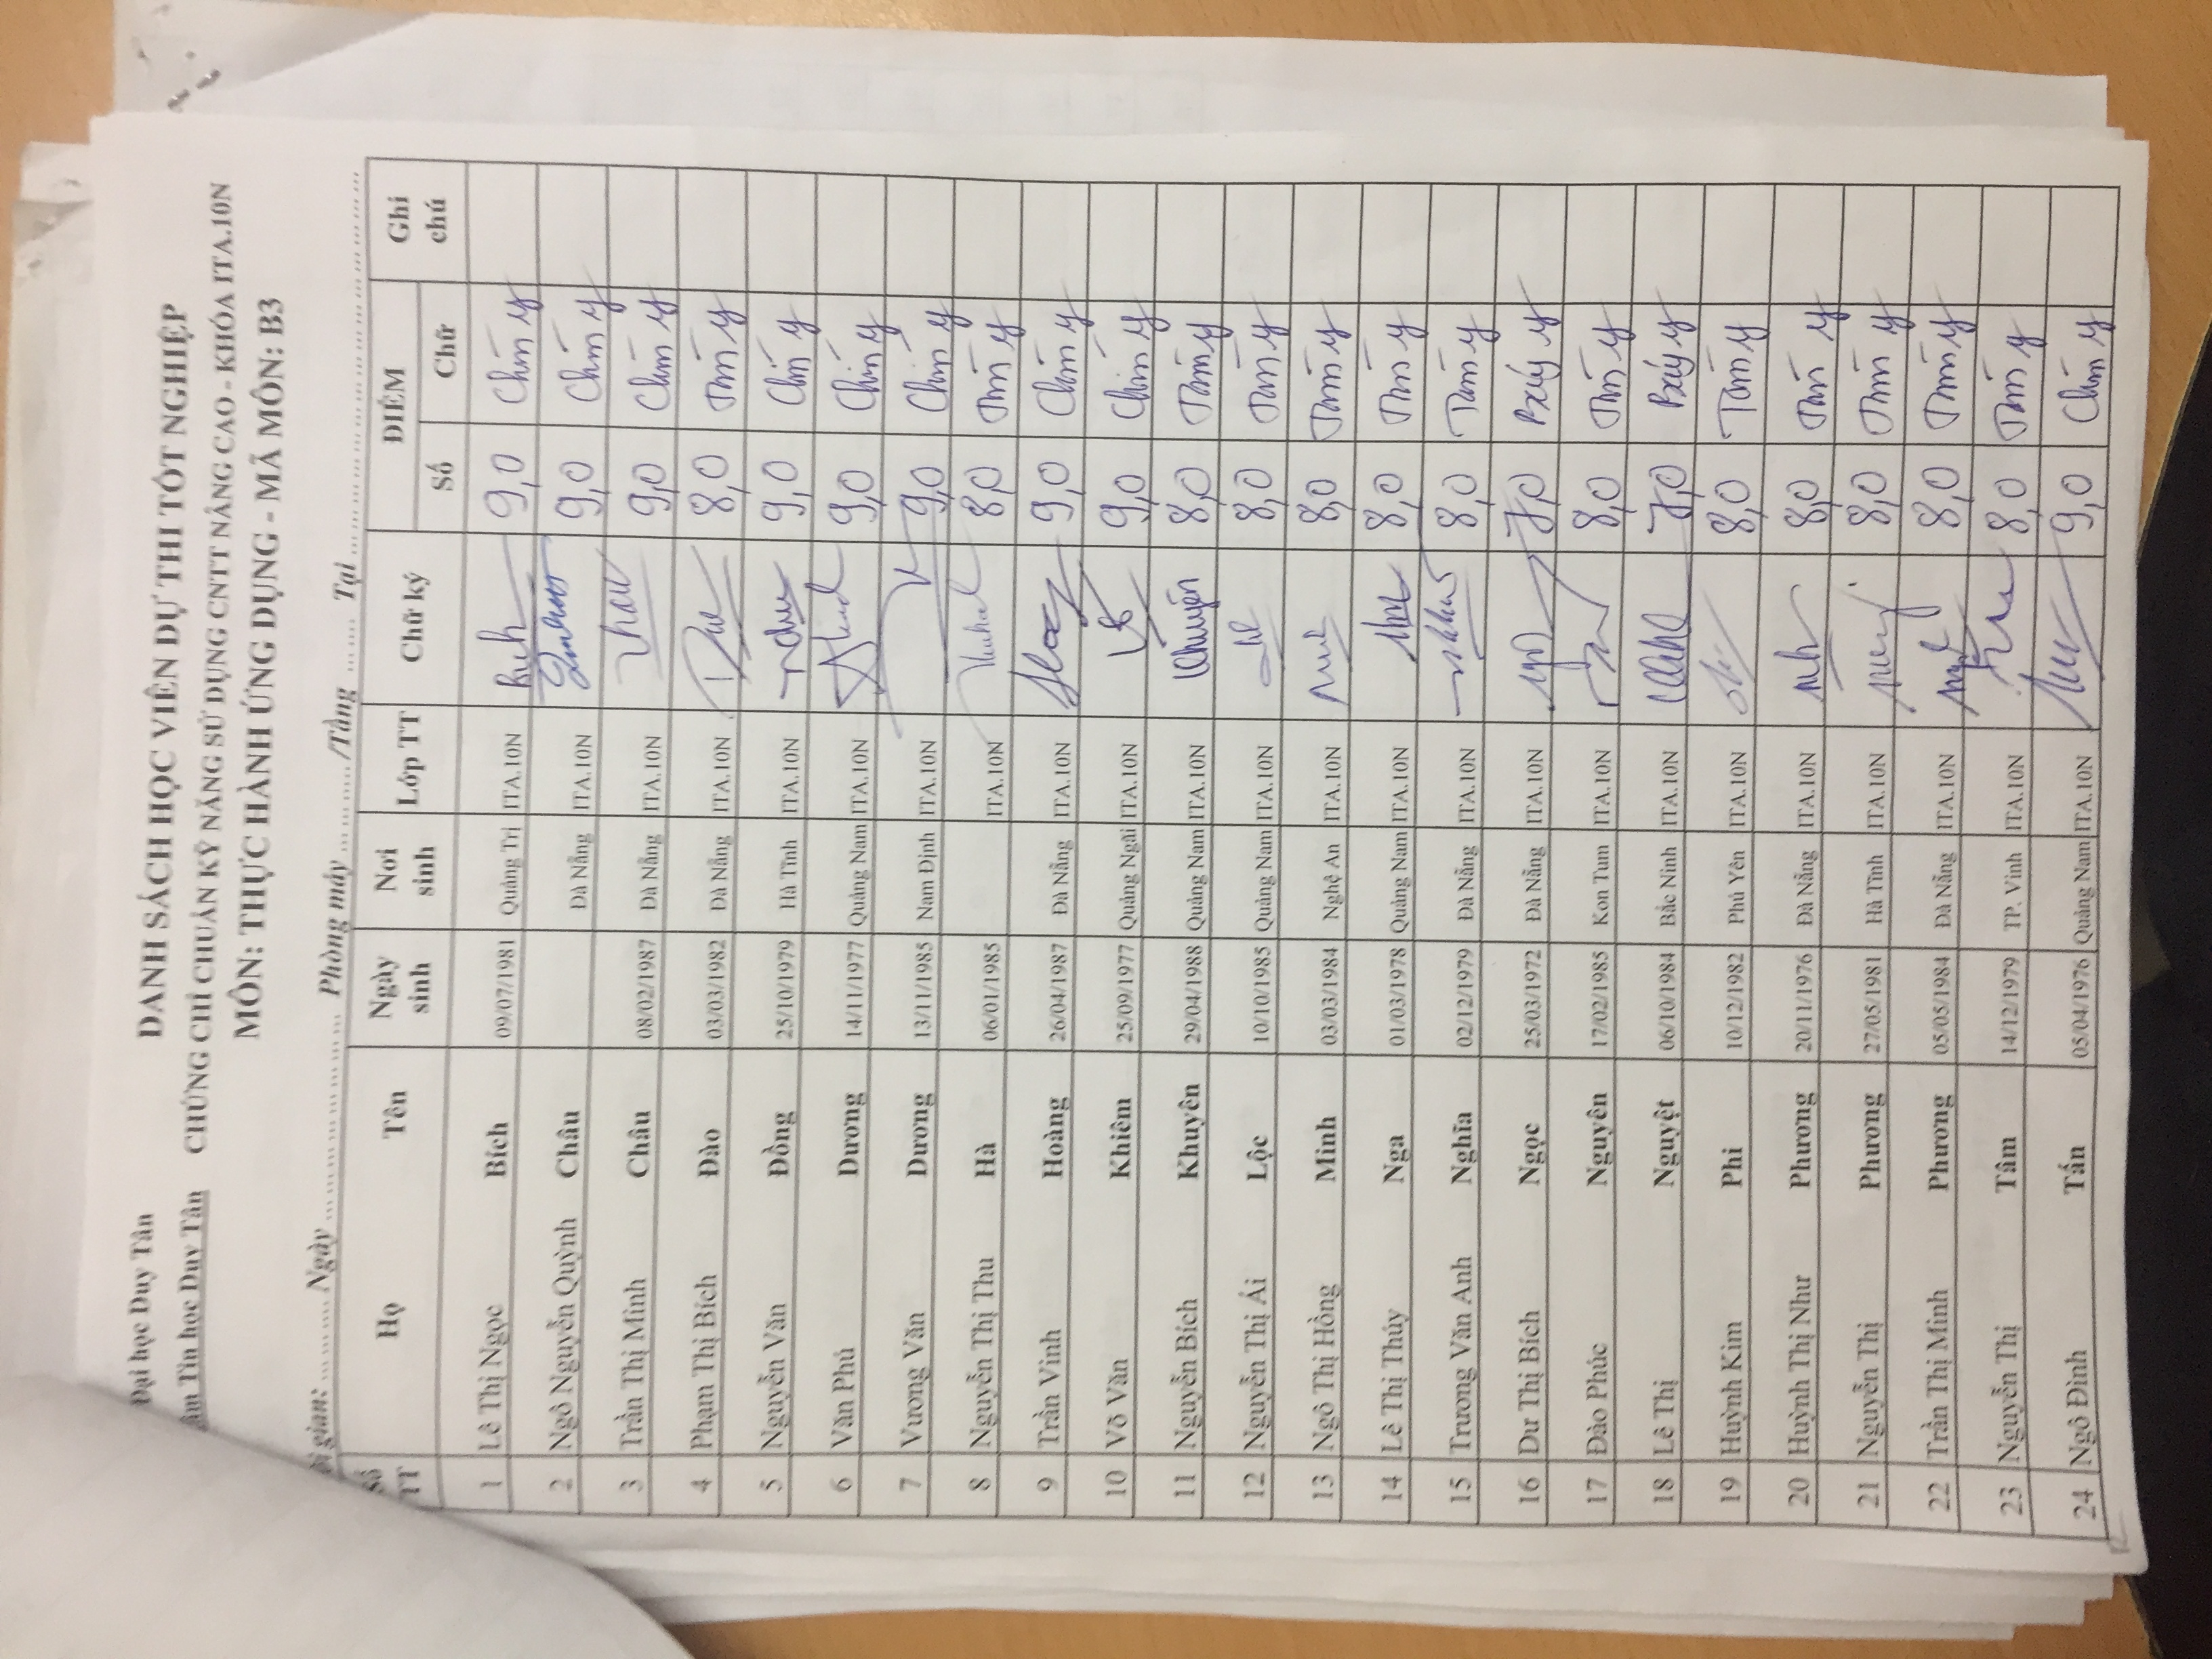 Đại học Duy Tân DANH SÁCH HỌC VIÊN DỰ THI TỐT NGHIỆP
Tin học Duy Tân CHỨNG CHỈ CHUẨN KỸ NĂNG SỬ DỤNG CNTT NÂNG CAO - KHÓA ITA.10N
MÔN: THỰC HÀNH ỨNG DỤNG - MÃ MÔN: B3
gian: ........ Ngày .................. Phòng máy ........../Tầng ........ Tại ..........................
Số TT Họ Tên Ngày sinh Nơi sinh Lớp TT Chữ ký ĐIỂM Ghi chú
Số Chữ
1 Lê Thị Ngọc Bích 09/07/1981 Quảng Trị ITA.10N Bích 9,0 Chín y
2 Ngô Nguyễn Quỳnh Châu Đà Nẵng ITA.10N 9,0 Chín y
3 Trần Thị Minh Châu 08/02/1987 Đà Nẵng ITA.10N 9,0 Chín y
4 Phạm Thị Bích Đào 03/03/1982 Đà Nẵng ITA.10N 8,0 Tám y
5 Nguyễn Văn Đồng 25/10/1979 Hà Tĩnh ITA.10N 9,0 Chín y
6 Văn Phú Dương 14/11/1977 Quảng Nam ITA.10N 9,0 Chín y
7 Vương Văn Dương 13/11/1985 Nam Định ITA.10N 9,0 Chín y
8 Nguyễn Thị Thu Hà 06/01/1985 ITA.10N 8,0 Tám y
9 Trần Vinh Hoàng 26/04/1987 Đà Nẵng ITA.10N 9,0 Chín y
10 Võ Văn Khiêm 25/09/1977 Quảng Ngãi ITA.10N 9,0 Chín y
11 Nguyễn Bích Khuyên 29/04/1988 Quảng Nam ITA.10N Khuyên 8,0 Tám y
12 Nguyễn Thị Ái Lộc 10/10/1985 Quảng Nam ITA.10N 8,0 Tám y
13 Ngô Thị Hồng Minh 03/03/1984 Nghệ An ITA.10N 8,0 Tám y
14 Lê Thị Thúy Nga 01/03/1978 Quảng Nam ITA.10N 8,0 Tám y
15 Trương Văn Anh Nghĩa 02/12/1979 Đà Nẵng ITA.10N 8,0 Tám y
16 Dư Thị Bích Ngọc 25/03/1972 Đà Nẵng ITA.10N 7,0 Bảy y
17 Đào Phúc Nguyên 17/02/1985 Kon Tum ITA.10N 8,0 Tám y
18 Lê Thị Nguyệt 06/10/1984 Bắc Ninh ITA.10N 7,0 Bảy y
19 Huỳnh Kim Phi 10/12/1982 Phú Yên ITA.10N 8,0 Tám y
20 Huỳnh Thị Như Phương 20/11/1976 Đà Nẵng ITA.10N 8,0 Tám y
21 Nguyễn Thị Phương 27/05/1981 Hà Tĩnh ITA.10N 8,0 Tám y
22 Trần Thị Minh Phương 05/05/1984 Đà Nẵng ITA.10N 8,0 Tám y
23 Nguyễn Thị Tâm 14/12/1979 TP. Vinh ITA.10N 8,0 Tám y
24 Ngô Đình Tấn 05/04/1976 Quảng Nam ITA.10N 9,0 Chín y